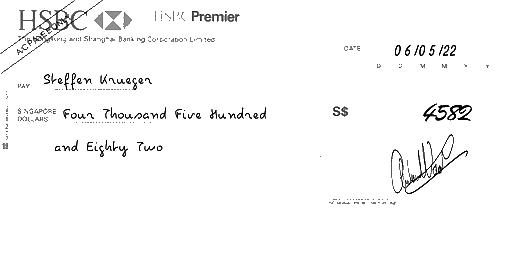 HSBC HSBC Premier
A/C PAYEE ONLY
The Hongkong and Shanghai Banking Corporation Limited
DATE 06/05/22
D D M M Y Y
PAY Steffen Krueger
SINGAPORE DOLLARS Four Thousand Five Hundred
S$ 4582
and Eighty Two